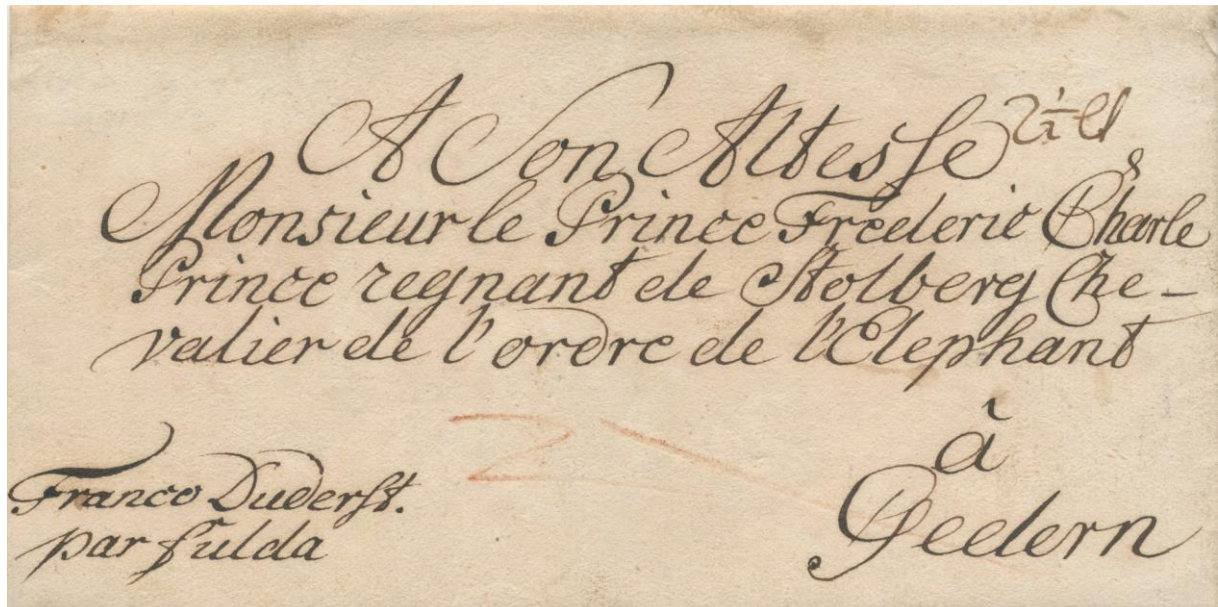 A Son Altesse
Monsieur le Prince Frederic Charle
Prince regnant de Stolberg Che-
valier de l'ordre de l'Elephant
à
Geedern
Franco Duderst.
par fulda